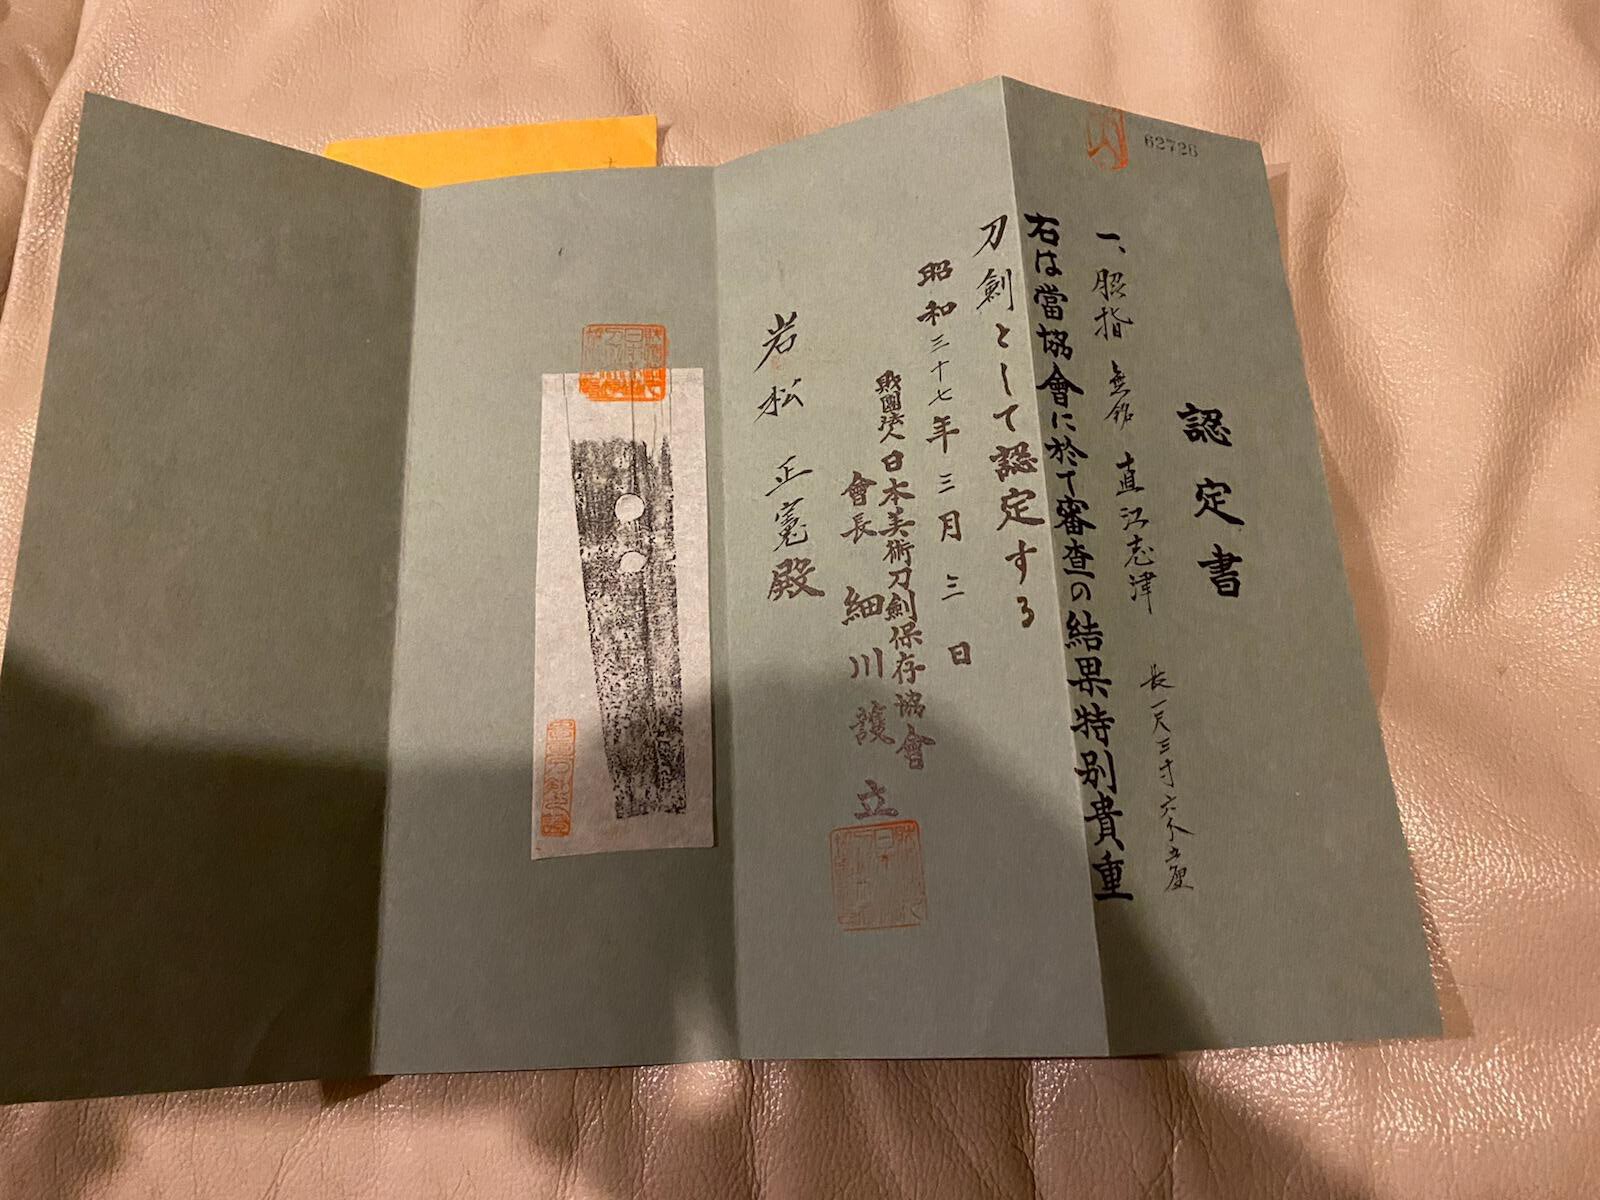 62726
認定書
一、脇指 無銘 直江志津 長一尺三寸六分五厘
右は當協會に於て審査の結果特別貴重
刀劍として認定する
昭和三十七年三月三日
財團法人日本美術刀劍保存協會
會長 細川護立
岩松正寛殿